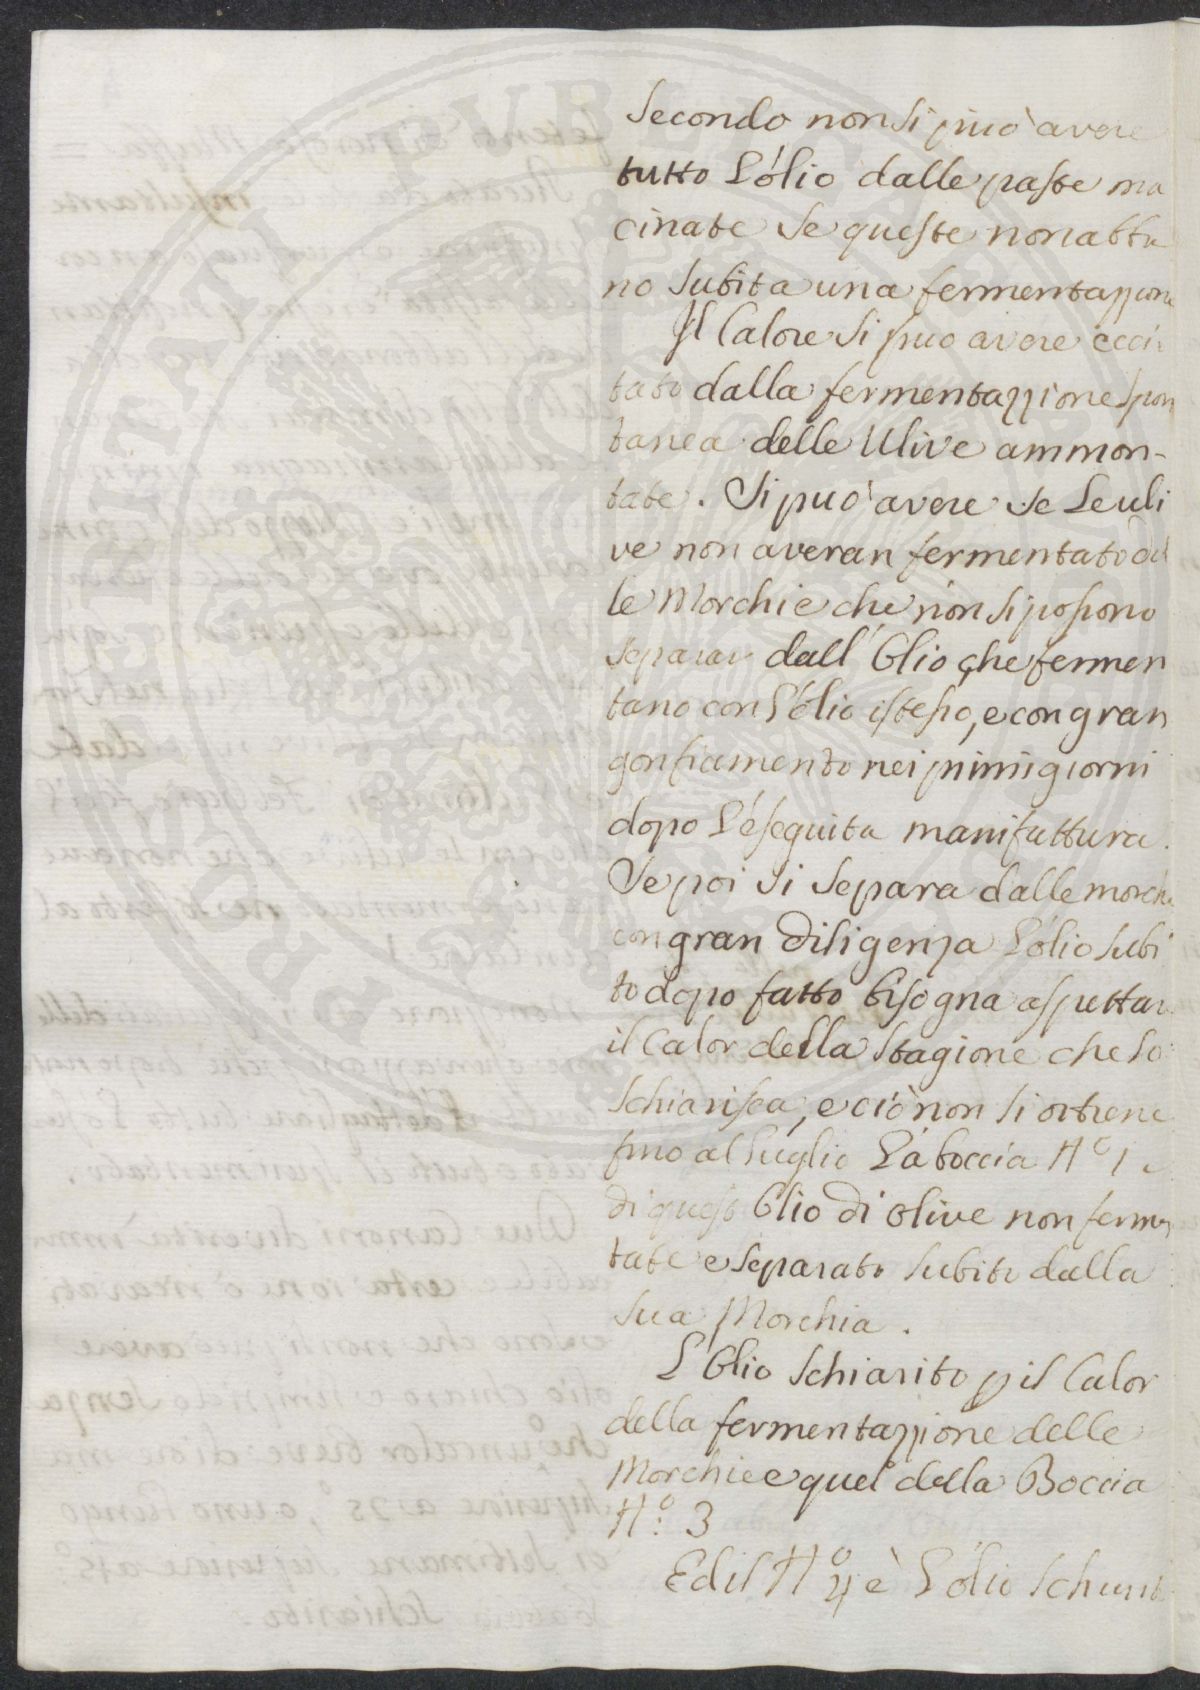 Secondo non si può avere
tutto L'ólio dalle paste ma
cinate se queste non abbia
no subita una fermentazzione
Il Calore si puo avere ecci
tato dalla fermentazzione spon
tanea delle Ulive ammon-
tate. Si può avere se Le uli
ve non averan fermentato dal
le Morchie che non si possono
separar dall' Olio che fermen
tano con L'ólio istesso, e con gran
gonfiamento nei primi giorni
dopo L'eseguita manifattura.
Se poi si separa dalle morchie
con gran diligenza L'ólio subi
to dopo fatto bisogna aspettar
il Calor della Stagione che lo
Schiarisca, e ciò non si ottiene
fino al Luglio La boccia N.º 1 è
di questo Olio di Olive non fermen
tate e separato subito dalla
sua Morchia.
L'Olio Schiarito p il Calor
della fermentazzione delle
Morchie e quel della Boccia
N.º 3
Ed il N.º 4 è L'ólio Schiarito